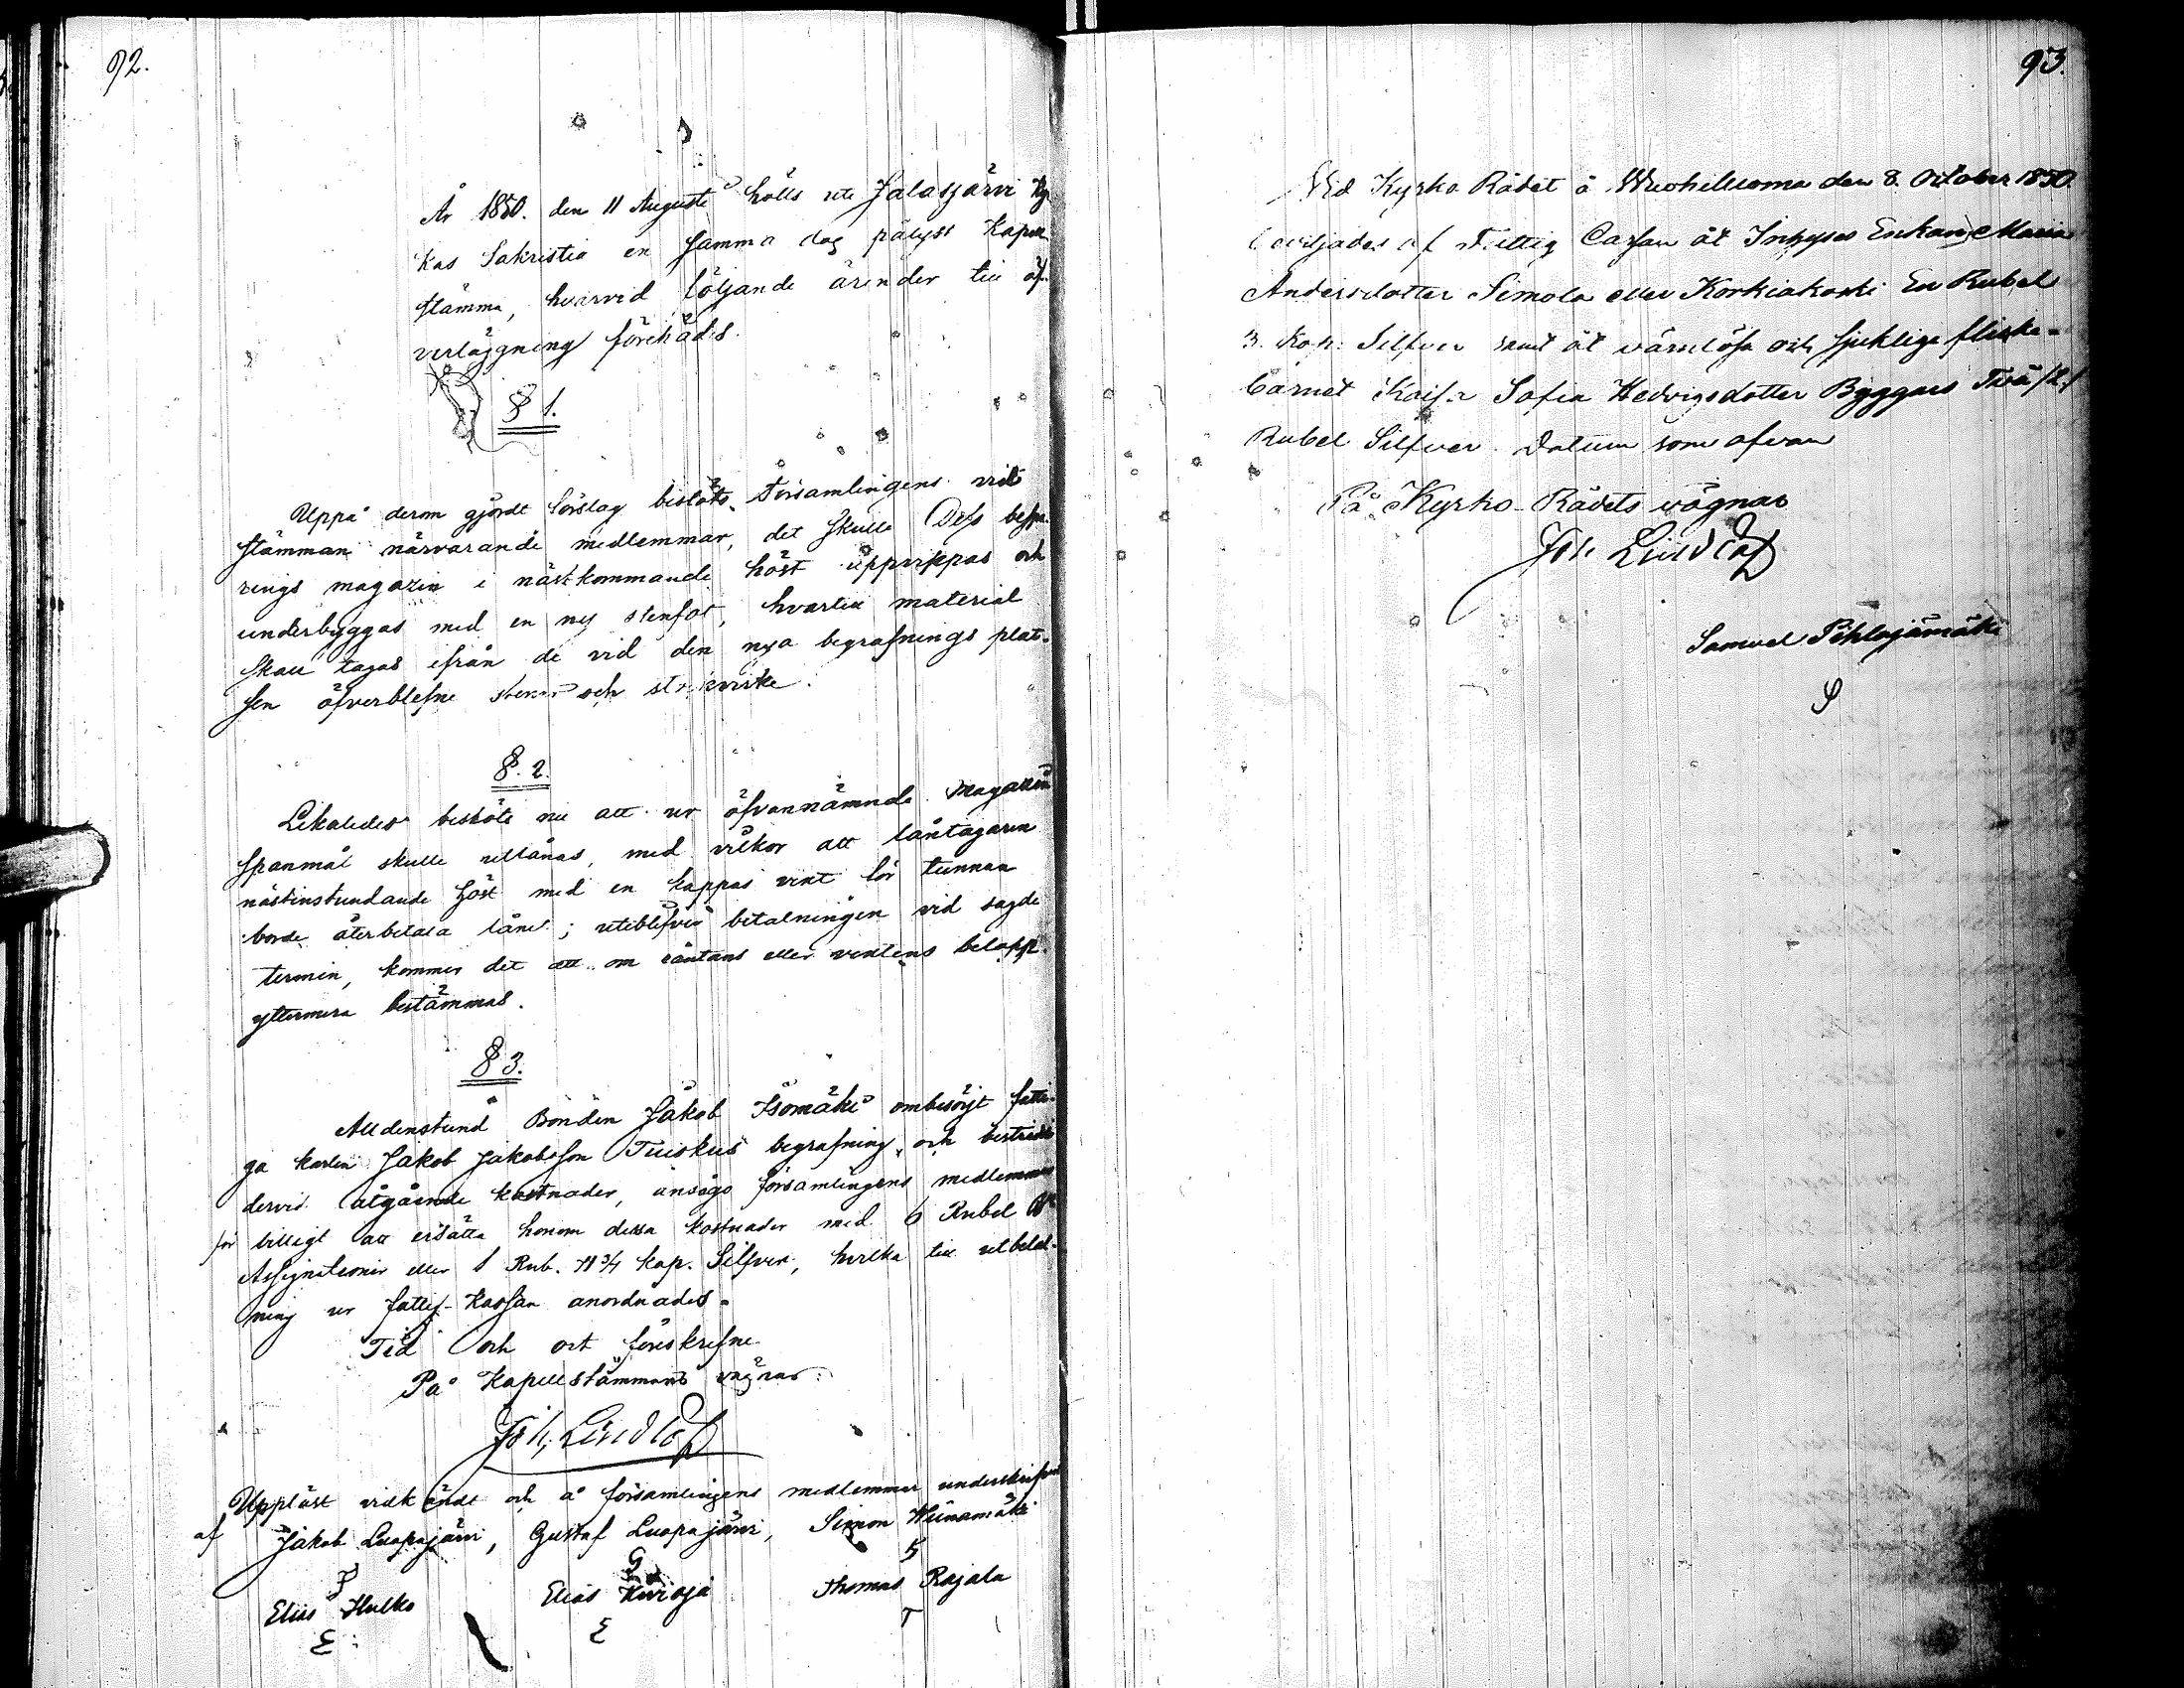 92.
År 1850. den 11 Augusti hölls uti Jalasjärvi Kyr
kas Sakristia en samma dag pålyst Kapell
stämma, hvarvid följande ärender till öf-
verläggning förehades.
§ 1.
Uppå derom gjordt förslag beslöts Församlingens vid
stämman närvarande medlemmar, det skulle Dess bespa-
rings magazin i nästkommande höst uppreppas och
underbyggas med en ny stenfot, hvartill material
skall tagas ifrån de vid den nya begrafnings plat-
sen öfverblefne stenar och stenvirke.
§. 2.
Likaledes beslöts nu att ur öfvannämnde Magazin
spanmål skulle utlånas, med vilkor att låntagaren
nästinstundande höst med en kappas vext för tunnan
borde återbetala lånet; utiblefve betalningen vid sagde
termin, kommer det att om räntans eller vextens belopp
yttermera bestämmas.
§ 3.
Alldenstund Bonden Jakob Isomäki ombesörjt fatti-
ga karlen Jakob Jakobsson Tuiskus begrafning och bestridt
dervid åtgående kostnader, ansågo församlingens medlemmar
för billigt att ersätta honom dessa kostnader med 6 Rubel Bco
Assignationer eller 1 Rub. 71 3/4 kop. Silfver, hvilka till utbetal-
ning ur fattig-Kassan anordnades.
Tid och ort föreskrefne.
På Kapellstämmans vägnar:
Joh. Lindlöf
Uppläst vidkändt och å församlingens medlemmar underskrifvit
af Jakob Luopajärvi, Gustaf Luopajärvi, Simon Heinämäki
J G S
Elias Hulko Elias Kivioja Thomas Rajala
E E T
93.
Vid Kyrko Rådet å Wuohiluoma den 8. October 1850
beviljades af Fattig Cassan åt Inhyses Enkan Maria
Andersdotter Simola eller Korkiakoski En Rubel
3. Kop. Silfver samt åt värnlösa och sjukliga flicke-
barnet Kaisa Sofia Hedvigsdotter Byggars Två /2/
Rubel Silfver. Datum som ofvan
På Kyrko-Rådets vägnar
Joh Lindlöf
Samuel Pihlajamäki
S